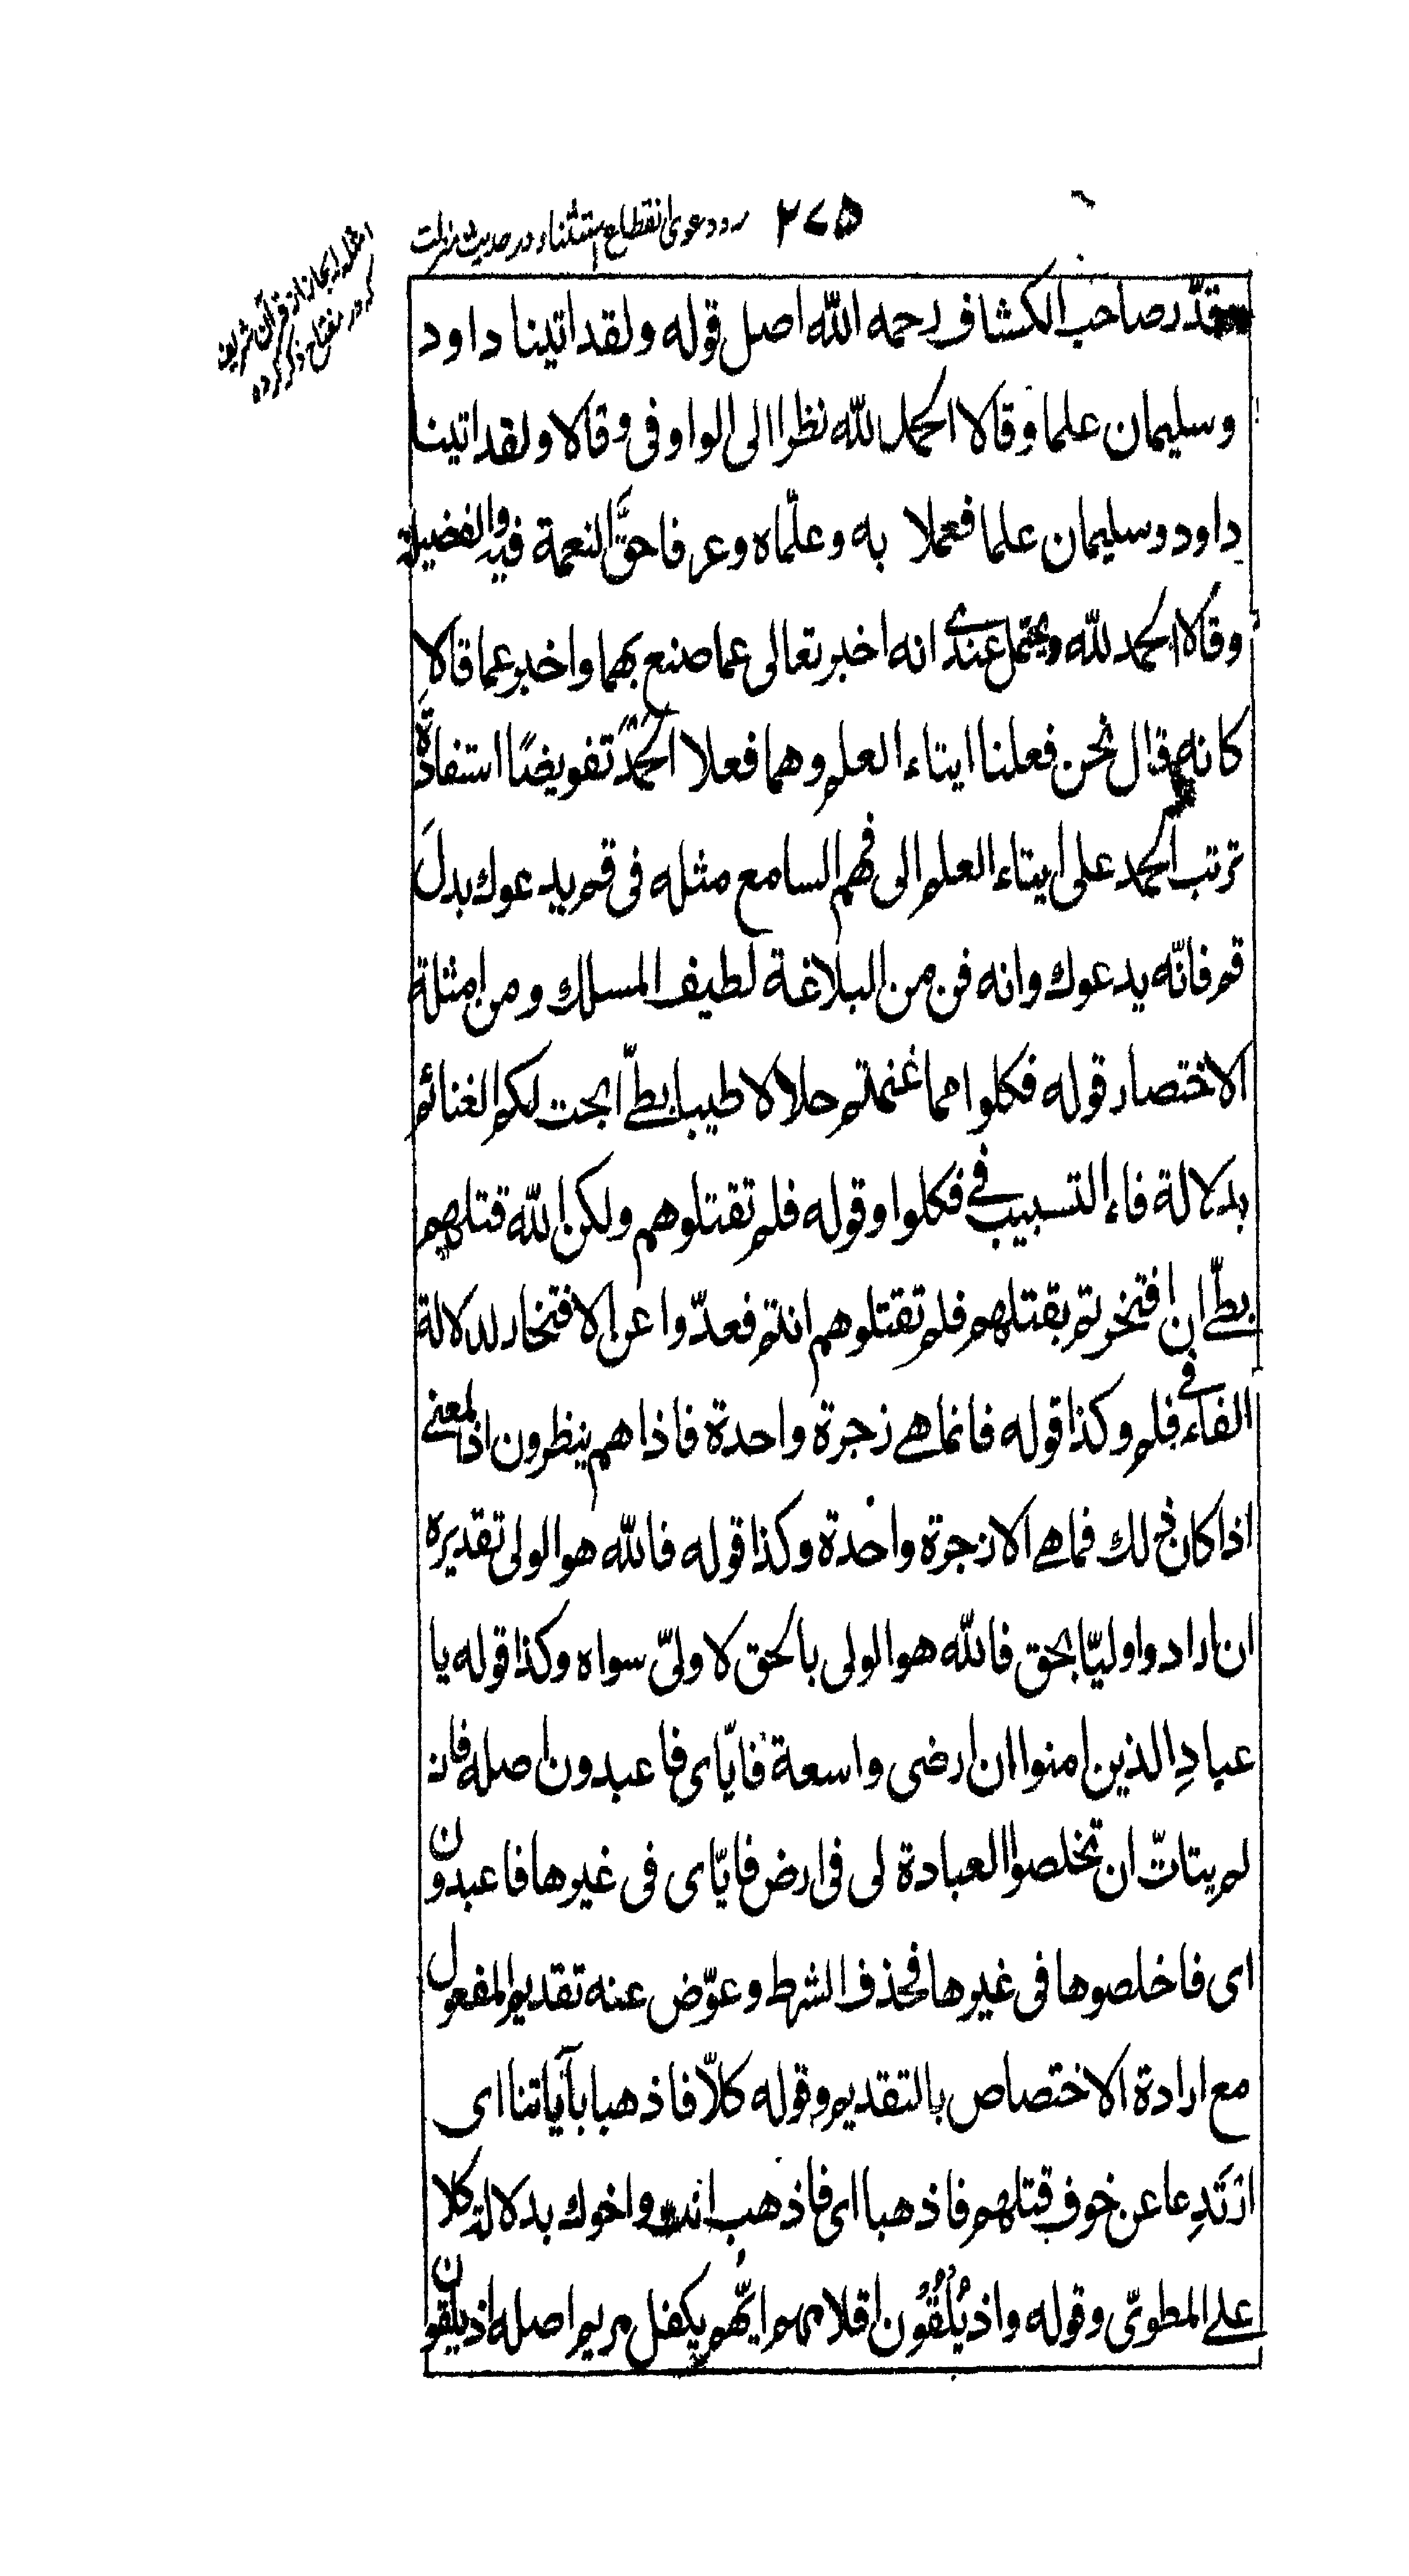 ٢٧٥ ردد دعوی انقطاع استثناء در حدیث منزلت
امثلهٔ ایجاز از قرآن شریف
که در مفتاح ذکر کرده
قدّر صاحب الكشاف رحمه الله اصل قوله ولقد اتينا داود
وسليمان علما وقالا الحمد لله نظرا الى الواو فى وقالا ولقد اتينا
داود وسليمان علما فعملا به وعلّماه وعرفا حقَّ النعمة فيه والفضيلة
وقالا الحمد لله ويحتمل عندى انه اخبر تعالى عما صنع بهما واخبر عما قالا
كانه قال نحن فعلنا ايتاء العلم وهما فعلا الحمدَ تفويضًا استفادةَ
ترتب الحمد على ايتاء العلم الى فهم السامع مثله فى قم يدعوك بدلَ
قم فانّه يدعوك وانه فن من البلاغة لطيف المسلك ومن امثلة
الاختصار قوله فكلوا مما غنمتم حلالا طيبا بطىّ ابحت لكم الغنائم
بدلالة فاء التسبيب فى فكلوا وقوله فلم تقتلوهم ولكن الله قتلهم
بطىّ ان افتخرتم بقتلهم فلم تقتلوهم انتم فعدّوا عن الافتخار لدلالة
الفاء فى فلم وكذا قوله فانما هى زجرة واحدة فاذا هم ينظرون اذا لمعنى
اذا كان ذلك فما هى الا زجرة واحدة وكذا قوله فالله هو الولى تقديره
ان ارادوا وليّا بحق فالله هو الولى بالحق لا ولىّ سواه وكذا قوله يا
عبادِ الذين امنوا ان ارضى واسعة فايّاى فاعبدون اصله فان
لم يتاتّ ان تخلصوا العبادة لى فى ارض فايّاى فى غيرها فاعبدون
اى فاخلصوها فى غيرها فحذف الشرط وعوّض عنه تقديم المفعول
مع ارادة الاختصاص بالتقديم وقوله كلاّ فاذهبا بآياتنا اى
ارْتَدِعا عن خوف قتلهم فاذهبا اى فاذهب انت واخوك بدلالة كلا
على المطوىّ وقوله واذ يُلْقُوْن اقلامهم ايّهم يكفل مريم اصله اذ يلقون